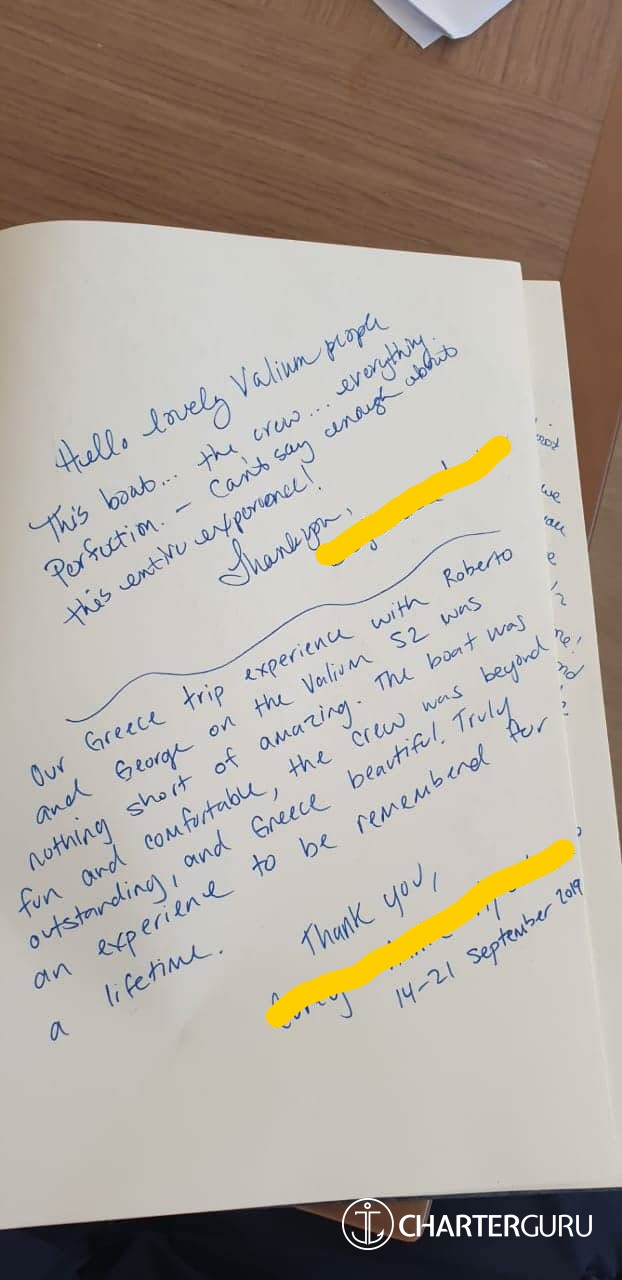 Hello lovely Valium people
This boat... the crew... everything.
Perfection. - Can't say enough about
this entire experience!
Thank you,
Our Greece trip experience with Roberto
and George on the Valium 52 was
nothing short of amazing. The boat was
fun and comfortable, the crew was beyond
outstanding, and Greece beautiful. Truly
an experience to be remembered for
a lifetime.
Thank you,
14-21 September 2019
CHARTERGURU